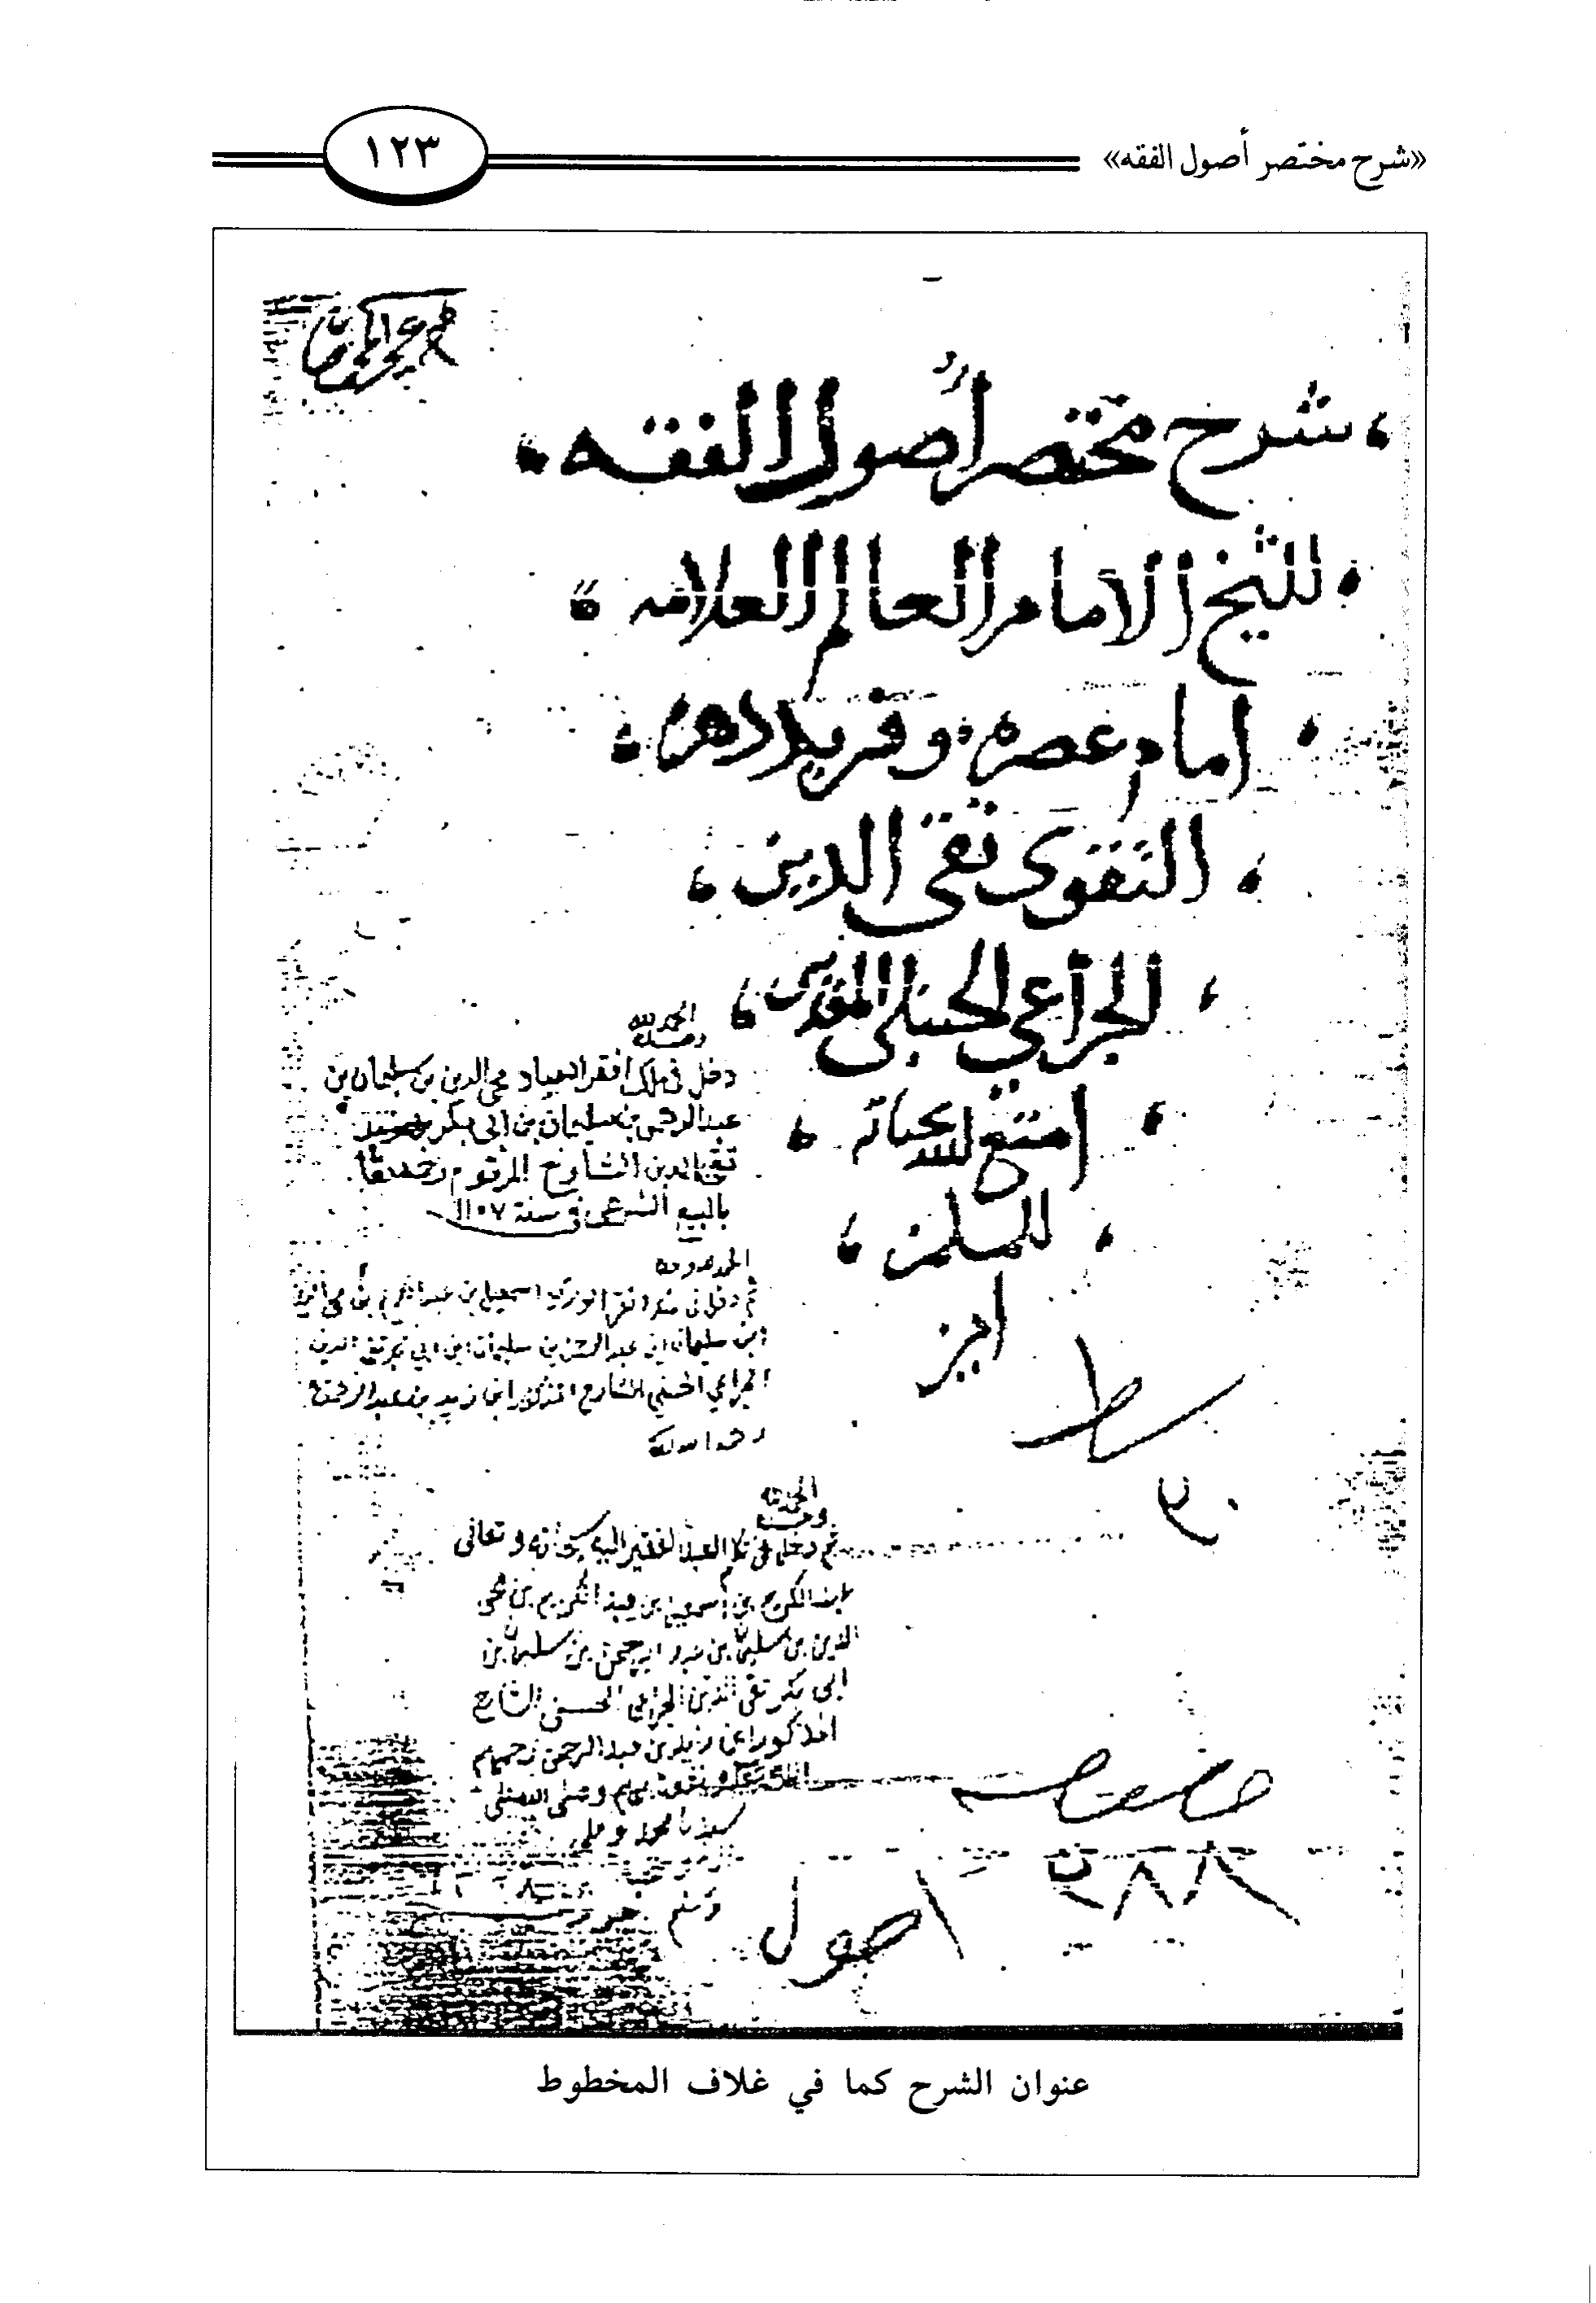 «شرح مختصر أصول الفقه»
١٢٣
شرح مختصر أصول الفقه
للشيخ الامام العالم العلامه
امام عصره وفريد دهره
التقوى تقى الدين
الجراعي الحنبلى المقدسى
امتع الله بحياته
للمسلمين
امين
الحمد لله
وحده
دخل في ملك افقر العباد محي الدين بن سليمان بن
عبدالرحمن بن سليمان بن ابي بكر
تقي الدين الشارح المرقوم
بالبيع الشرعي في سنة ١١٠٧
الحمد لله وحده
ثم دخل في اسمعيل بن عبد الكريم بن محي الدين
ابن سليمان ابن عبد الرحمن بن سليمان ابن ابي بكر تقي الدين
الجراعي الحنبلي الشارح المذكور ابن زيد بن عبد الرحمن
الحمد لله
وحده
ثم دخل في العبد الفقير اليه سبحانه وتعالى
عبد الكريم بن اسمعيل بن عبد الكريم بن محي
الدين بن سليمان بن عبد الرحمن بن سليمان بن
ابي بكر تقي الدين الجراعي الحنبلي الشارح
المذكور ابن زيد بن عبد الرحمن رحمهم
الله وصلى الله على
سيدنا محمد وعلى
اصول
عنوان الشرح كما في غلاف المخطوط